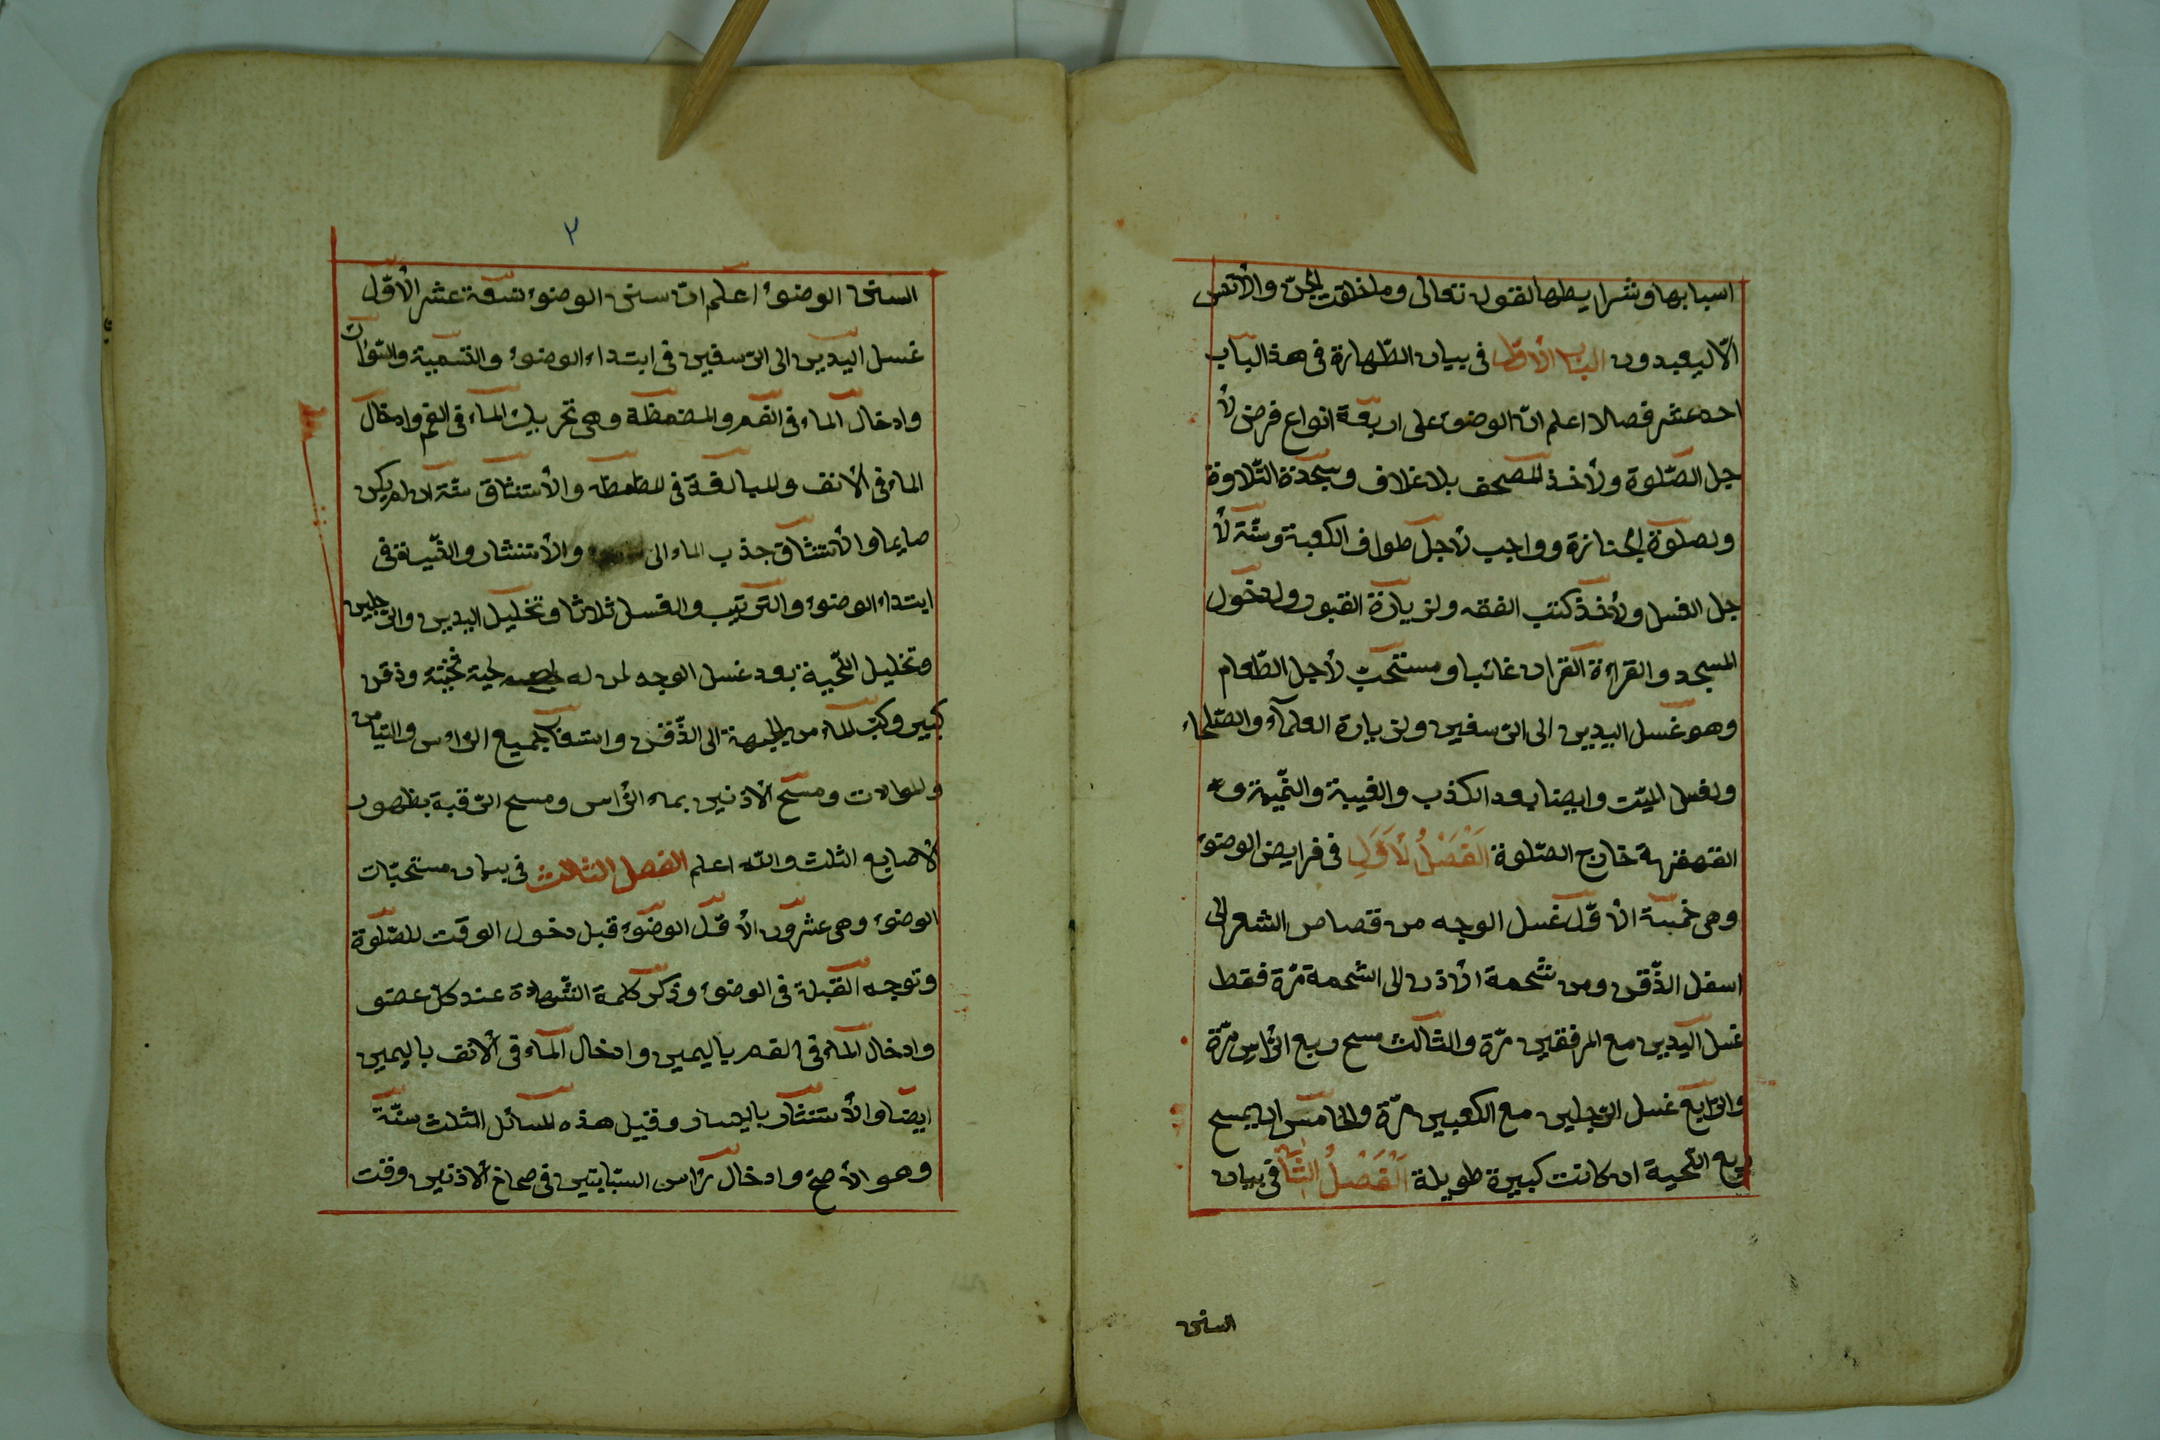 اسبابها وشرايطها لقوله تعالى وما خلقت الجنّ والأنس
الّا ليعبدون الباب الأوّل في بيان الطّهارة في هذا الباب
احد عشر فصلا اعلم انّ الوضوء على اربعة انواع فرض لأ
جل الصّلوة ولأخذ المصحف بلا غلاف وسجدة التّلاوة
ولصلوة الجنازة وواجب لأجل طواف الكعبة وسنّة لأ
جل الغسل ولأخذ كتب الفقه ولزيارة القبور ولدخول
المسجد والقراءة القران غائبا ومستحبّ لأجل الطّعام
وهو غسل اليدين الى الرّسغين ولزيارة العلمآء والصّلحاء
ولغسل الميّت وايضا بعد الكذب والغيبة والنّميمة و
القهقهة خارج الصّلوة اَلْفَصْلُ لْاَوَّلِ في فرايض الوضوء
وهي خمسة الأوّل غسل الوجه من قصاص الشعر الى
اسفل الذّقن ومن شحمة الأذن الى الشحمة مرّة فقط
غسل اليدين مع المرفقين مرّة والثّالث مسح ربع الرّأس مرّة
والرّابع غسل الرّجلين مع الكعبين مرّة والخامس ان يمسح
ربع اللّحية ان كانت كبيرة طويلة اَلْفَصْلُ الثّا في بيان
السنن
٢
السنن الوضوء اعلم انّ سنن الوضوء تسعة عشر الأوّل
غسل اليدين الى الرّسغين في ابتداء الوضوء والتّسمية والسّواك
وادخال الماء في الفم والمضمظة وهي تحريك الماء في الفم وادخال
الماء في الأنف والمبالغة في المظمظه والأستنشاق سنّة ان لم يكن
صايما والأستنشاق جذب الماء الى والأستنثار والنّية في
ابتداء الوضوء والترتيب والغسل ثلاثا وتخليل اليدين والرّجلين
وتخليل اللّحية بعد غسل الوجه لمن له لحية نخينة وذقن
كبير وكبّ الماء من الجبهة الى الذّقن واستعاب جميع الرّأس والتيامن
والموالات ومسح الأذنين بماء الرّأس ومسح الرّقبة بظهور
لاصابع الثلث واللّه اعلم الفصل الثّالث في بيان مستحبّات
الوضوء وهي عشرون الأوّل الوضوء قبل دخول الوقت للصّلوة
وتوجه القبلة في الوضوء وذكر كلمة الشّهادة عند كلّ عضو
وادخال الماء في الفم باليمين وادخال الماء في الأنف باليمين
ايضا والأستنثار باليسار وقيل هذه المسائل الثلث سنّة
وهو الأصحّ وادخال رأس السبّابتين في صماخ الأذنين وقت